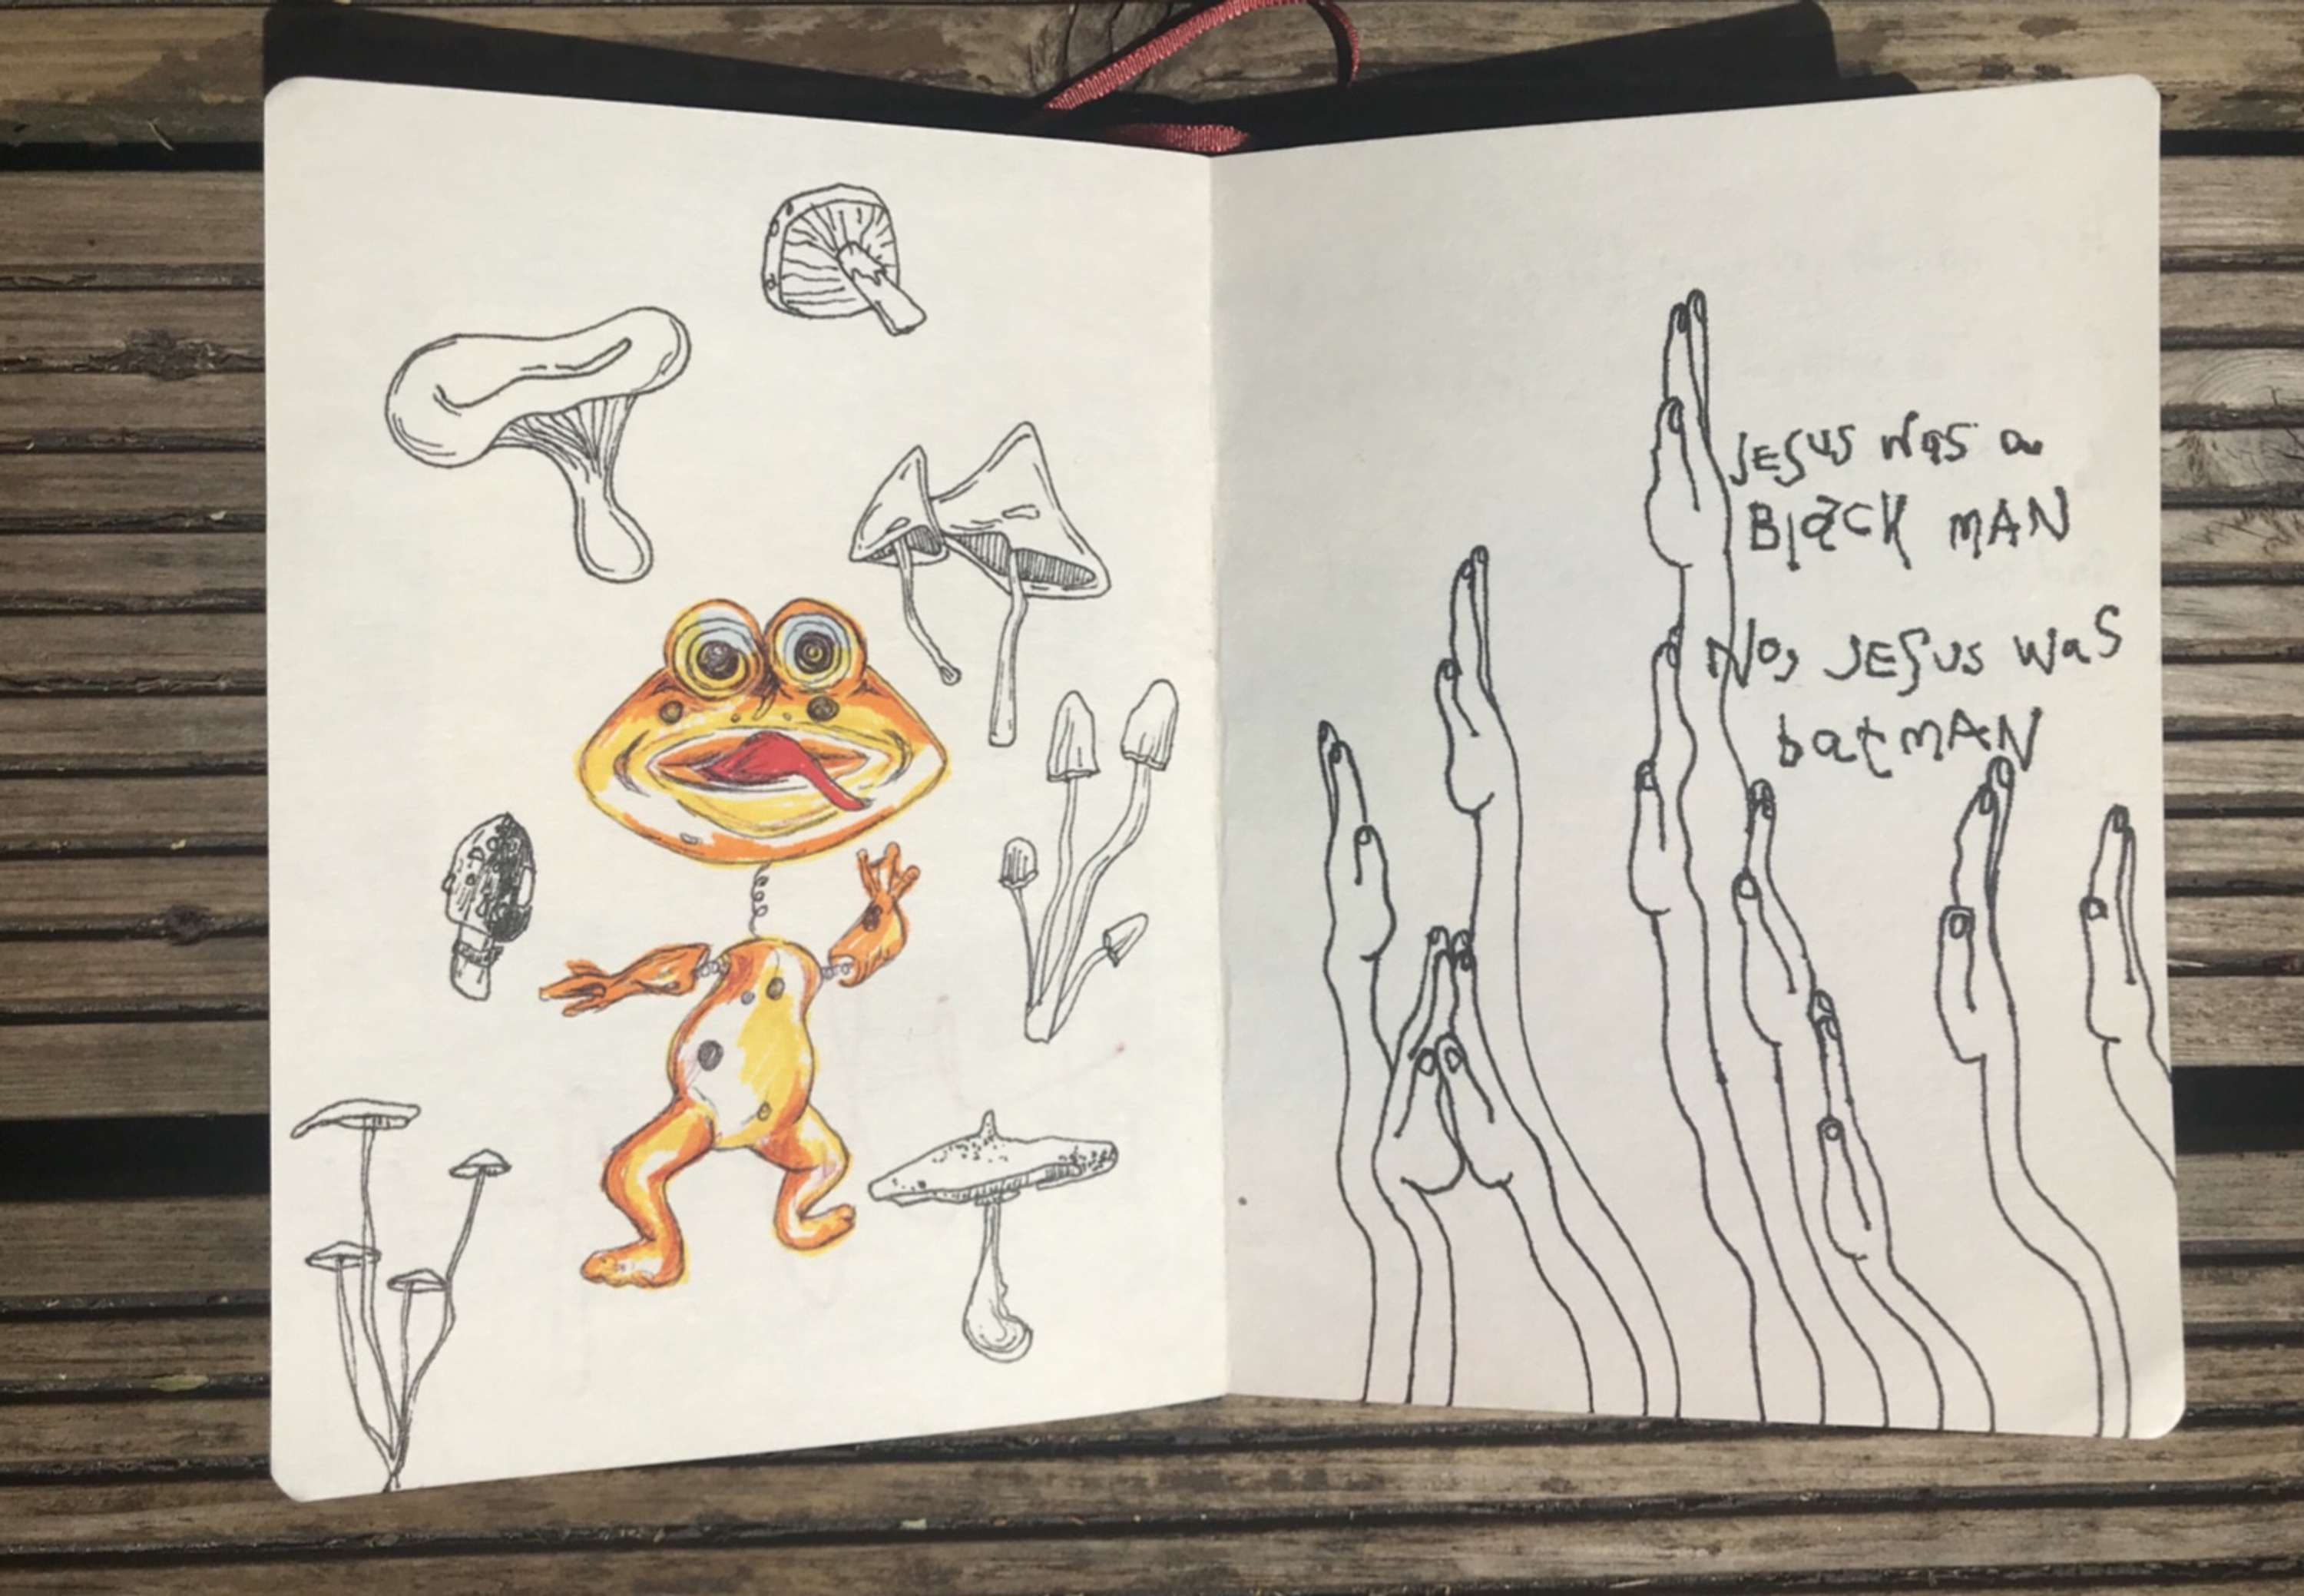 JESUS was a
BlacK mAN
No, JESUS waS
batmAN